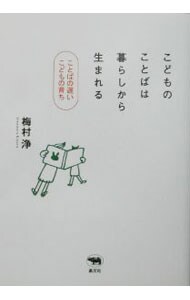 こどもの
ことばは
暮らしから
生まれる
ことばの遅い
こどもの育ち
梅村 浄
晶文社